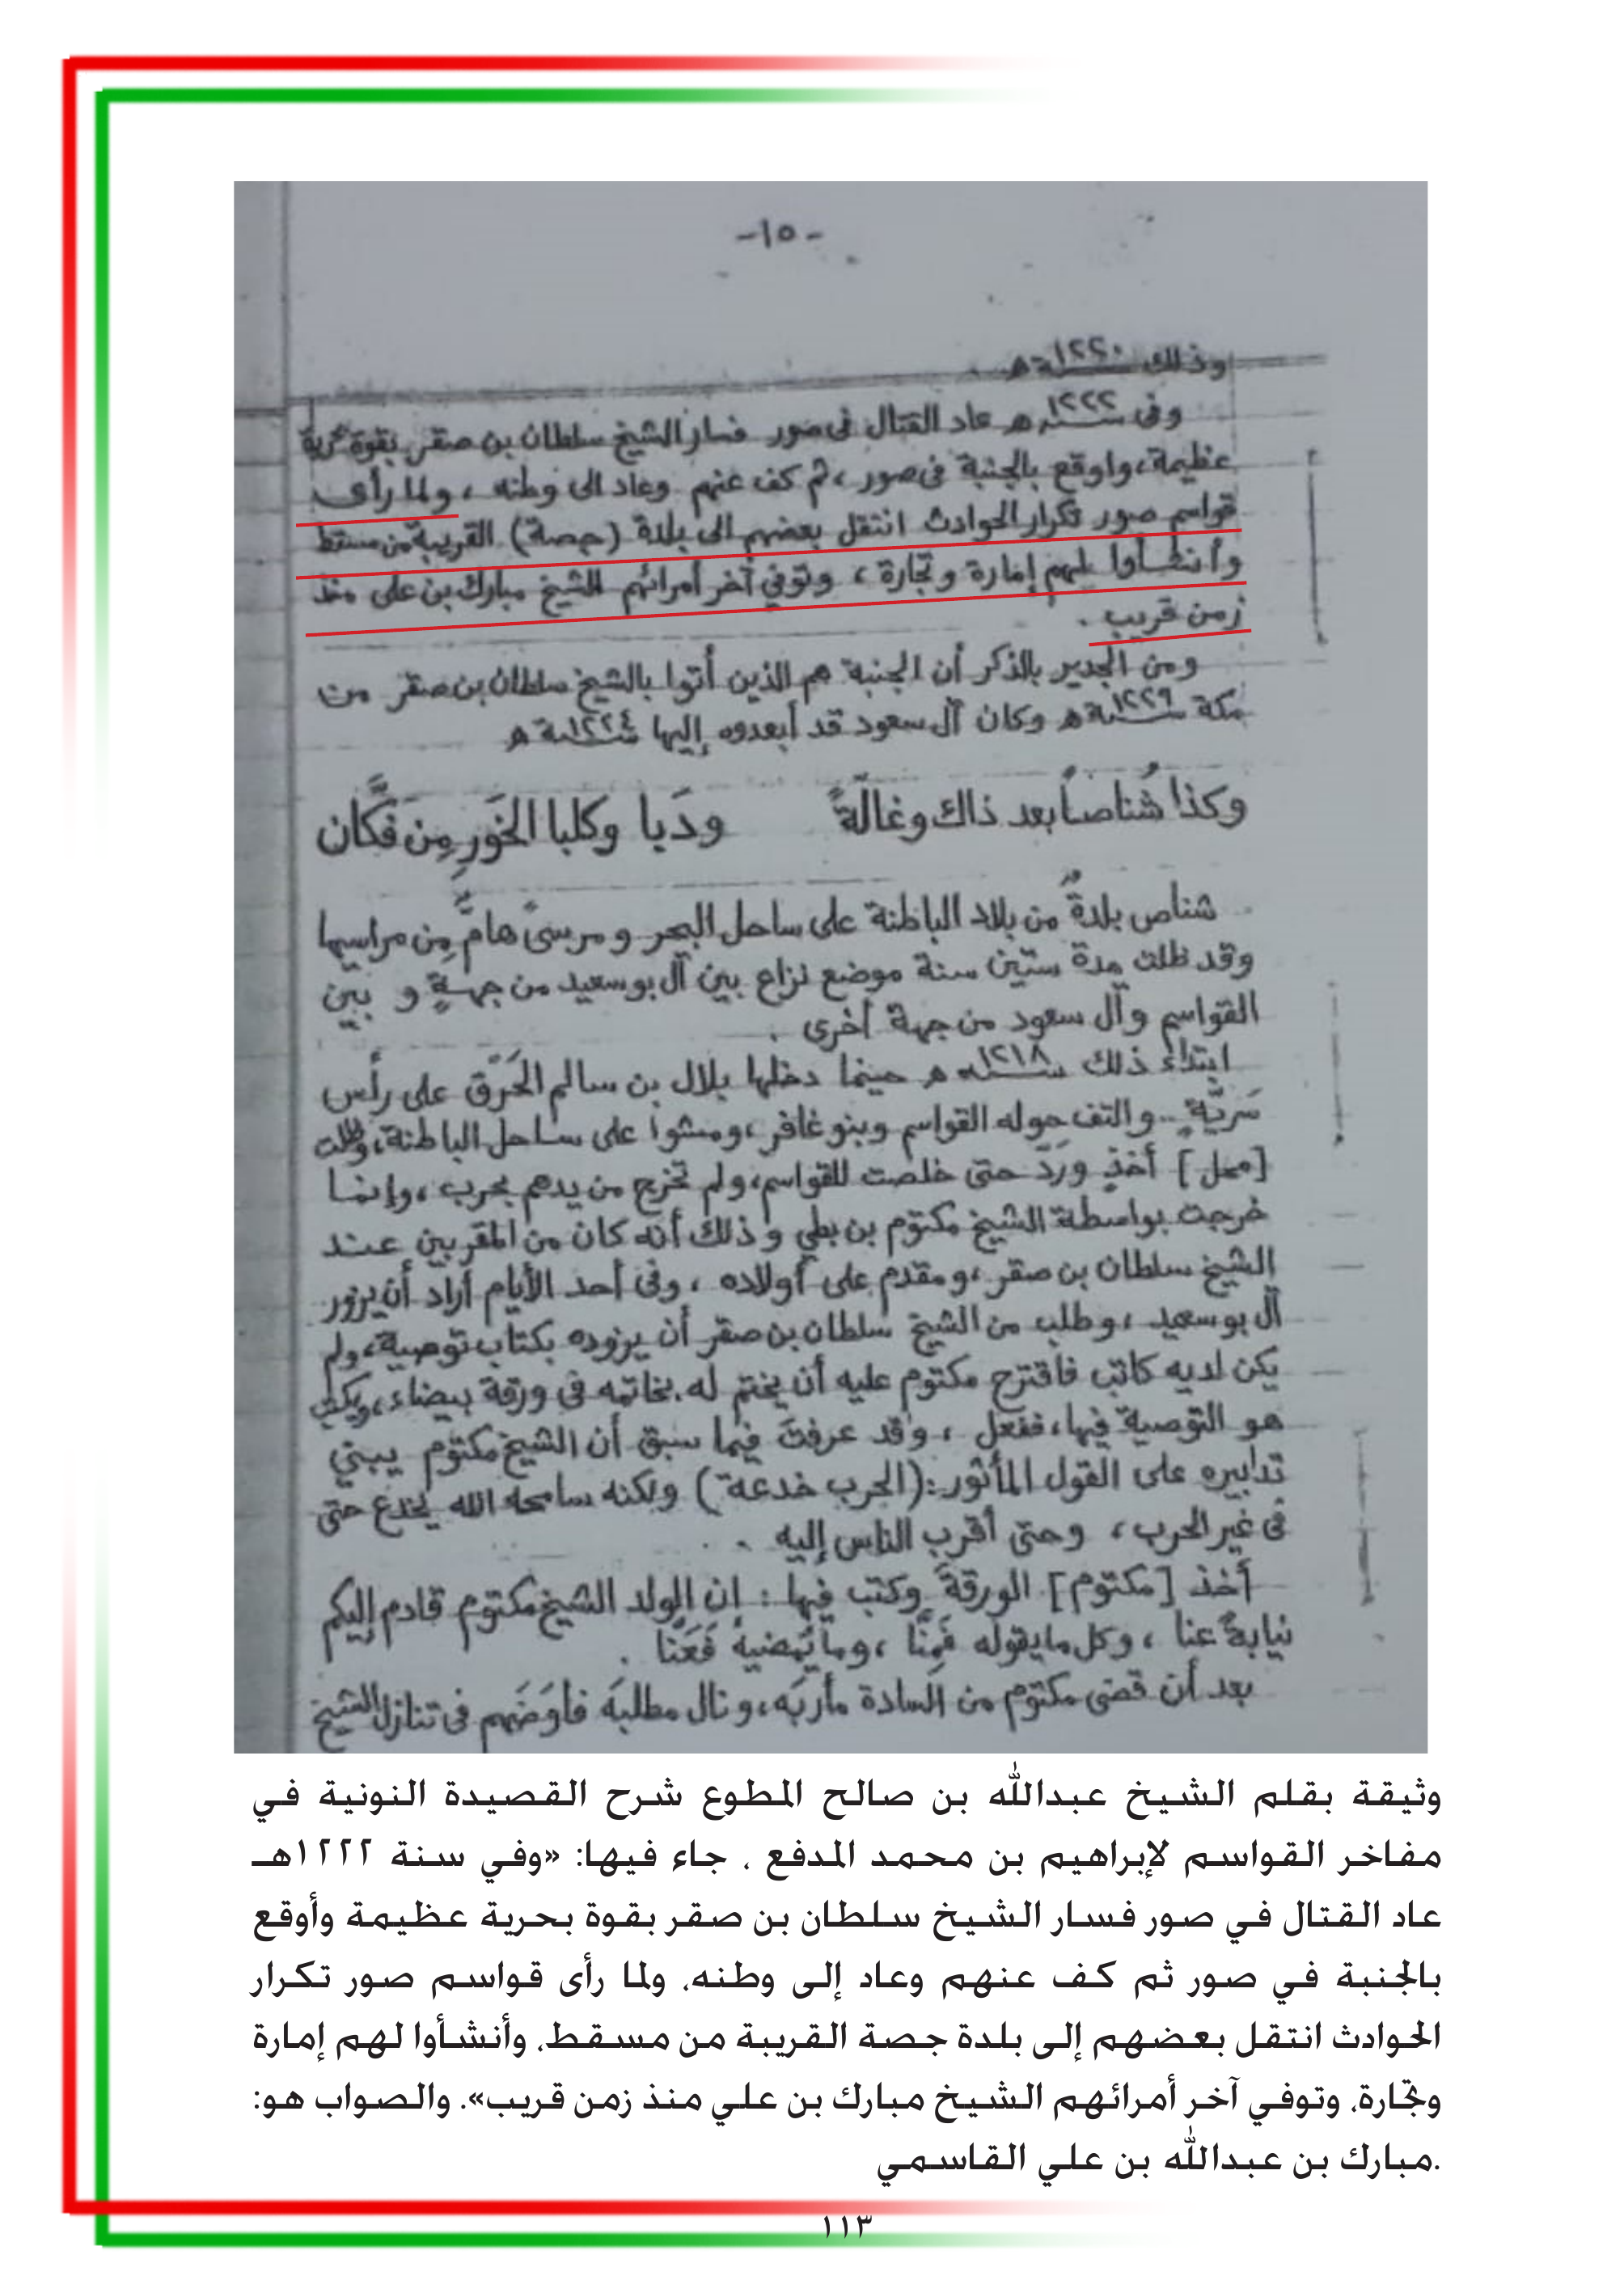 -١٥-
وذلك سنة ١٢٢٠ه .
وفى سنة ١٢٢٢ه عاد القتال فى صور فسار الشيخ سلطان بن صقر بقوة بحرية
عظيمة، واوقع بالجنبة فى صور ، ثم كف عنهم وعاد الى وطنه ، ولما رأى
قواسم صور تكرار الحوادث انتقل بعضهم الى بلدة (جصة) القريبة من مسقط
وأنشأوا لهم إمارة وتجارة ، وتوفي آخر أمرائهم الشيخ مبارك بن على منذ
زمن قريب .
ومن الجدير بالذكر أن الجنبة هم الذين أتوا بالشيخ سلطان بن صقر من
مكة سنة ١٢٢٩ه وكان آل سعود قد أبعدوه إليها سنة ١٢٢٤ه
وكذا شُناصاً بعد ذاك وغالّةً ودَبا وكلبا الخَورِ مِن فَكَّان
شناص بلدةٌ من بلاد الباطنة على ساحل البحر ومرسىً هامٌّ مِن مراسيها
وقد ظلت مدة ستين سنة موضع نزاع بين آل بوسعيد من جهةٍ و بين
القواسم وآل سعود من جهة أخرى .
ابتداء ذلك سنة ١٢١٨ ه حينما دخلها بلال بن سالم الحَرّق على رأس
سَريّةٍ .. والتف حوله القواسم وبنو غافر، ومشوا على ساحل الباطنة، وظلت
[محل] أخذٍ ورَدّ حتى خلصت للقواسم، ولم تخرج من يدهم بحرب ، وإنما
خرجت بواسطة الشيخ مكتوم بن بطي و ذلك أنه كان من المقربين عند
الشيخ سلطان بن صقر ، ومقدم على أولاده ، وفى أحد الأيام أراد أن يزور
آل بوسعيد ، وطلب من الشيخ سلطان بن صقر أن يزوده بكتاب توصية، ولم
يكن لديه كاتب فاقترح مكتوم عليه أن يختم له بخاتمه فى ورقة بيضاء، ويكتب
هو التوصية فيها، ففعل ، وقد عرفتَ فيما سبق أن الشيخ مكتوم يبني
تدابيره على القول المأثور: (الحرب خدعة) ولكنه سامحه الله يخدع حتى
فى غير الحرب ، وحتى أقرب الناس إليه .
أخذ [مكتوم] الورقةَ وكتب فيها : إن الولد الشيخ مكتوم قادم إليكم
نيابةً عنا ، وكل مايقوله فَمِنَّا ، وما يُمضيه فَعَنَّا .
بعد أن قضى مكتوم من السادة مأربَه، ونال مطلبَه فاوَضَهم فى تنازل الشيخ
وثيقة بقلم الشيخ عبدالله بن صالح المطوع شرح القصيدة النونية في
مفاخر القواسم لإبراهيم بن محمد المدفع ، جاء فيها: «وفي سنة ١٢٢٢هـ
عاد القتال في صور فسار الشيخ سلطان بن صقر بقوة بحرية عظيمة وأوقع
بالجنبة في صور ثم كف عنهم وعاد إلى وطنه، ولما رأى قواسم صور تكرار
الحوادث انتقل بعضهم إلى بلدة جصة القريبة من مسقط، وأنشأوا لهم إمارة
وتجارة، وتوفي آخر أمرائهم الشيخ مبارك بن علي منذ زمن قريب». والصواب هو:
.مبارك بن عبدالله بن علي القاسمي
١١٣